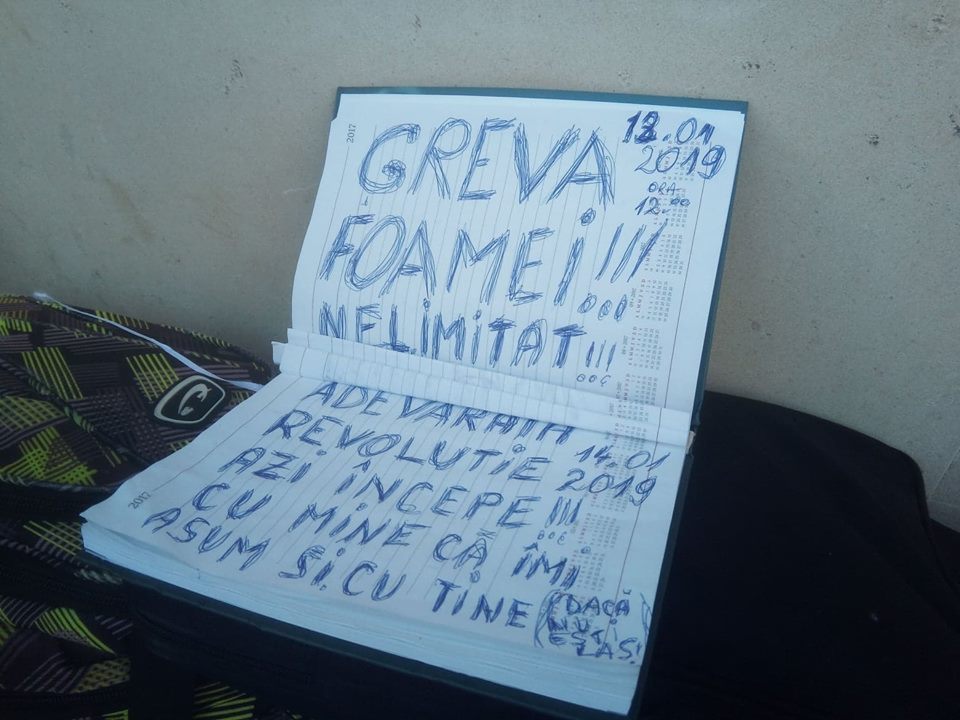 2017
GREVA
FOAMEI!!!
NELIMITAT!!!
13.01
2019
ORA
12.00
ADEVARATA
REVOLUTIE
AZI ÎNCEPE!!!
CU MINE CĂ ÎMI
ASUM SI.CU TINE
(DACĂ
NU
EȘTI
LAS!
14.01
2019
2017
C